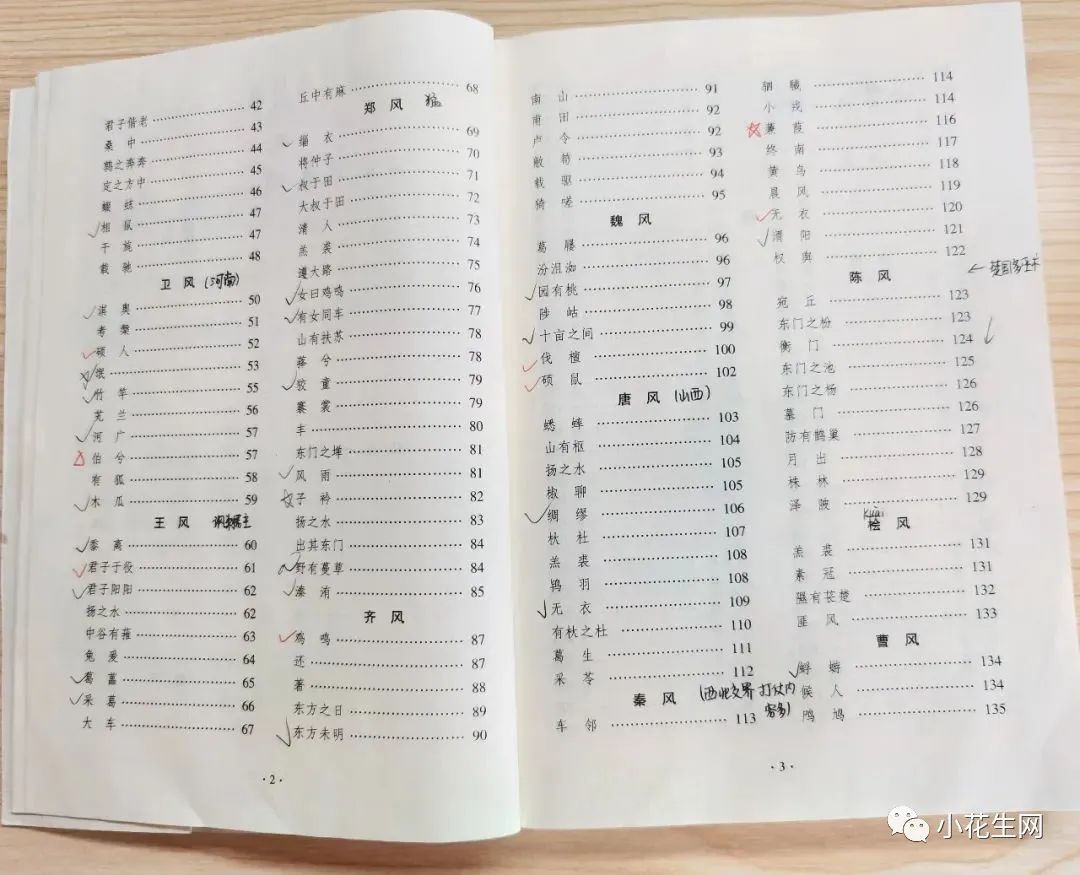 君子偕老 42
桑中 43
鹑之奔奔 44
定之方中 45
蝃蝀 46
相鼠 47
干旄 47
载驰 48
卫风 (河南)
淇奥 50
考槃 51
硕人 52
氓 53
竹竿 55
芄兰 56
河广 57
伯兮 57
有狐 58
木瓜 59
王风
黍离 60
君子于役 61
君子阳阳 62
扬之水 62
中谷有蓷 63
兔爰 64
葛藟 65
采葛 66
大车 67
·2·
丘中有麻 68
郑风
缁衣 69
将仲子 70
叔于田 71
大叔于田 72
清人 73
羔裘 74
遵大路 75
女曰鸡鸣 76
有女同车 77
山有扶苏 78
萚兮 78
狡童 79
褰裳 79
丰 80
东门之墠 81
风雨 81
子衿 82
扬之水 83
出其东门 84
野有蔓草 84
溱洧 85
齐风
鸡鸣 87
还 87
著 88
东方之日 89
东方未明 90
南山 91
甫田 92
卢令 92
敝笱 93
载驱 94
猗嗟 95
魏风
葛屦 96
汾沮洳 96
园有桃 97
陟岵 98
十亩之间 99
伐檀 100
硕鼠 102
唐风 (山西)
蟋蟀 103
山有枢 104
扬之水 105
椒聊 105
绸缪 106
杕杜 107
羔裘 108
鸨羽 108
无衣 109
有杕之杜 110
葛生 111
采苓 112
秦风 (西北交界 打仗内容多)
车邻 113
·3·
驷驖 114
小戎 114
蒹葭 116
终南 117
黄鸟 118
晨风 119
无衣 120
渭阳 121
权舆 122
陈风
宛丘 123
东门之枌 123
衡门 124
东门之池 125
东门之杨 126
墓门 126
防有鹊巢 127
月出 128
株林 129
泽陂 129
kuài
桧风
羔裘 131
素冠 131
隰有苌楚 132
匪风 133
曹风
蜉蝣 134
候人 134
鸤鸠 135
小花生网